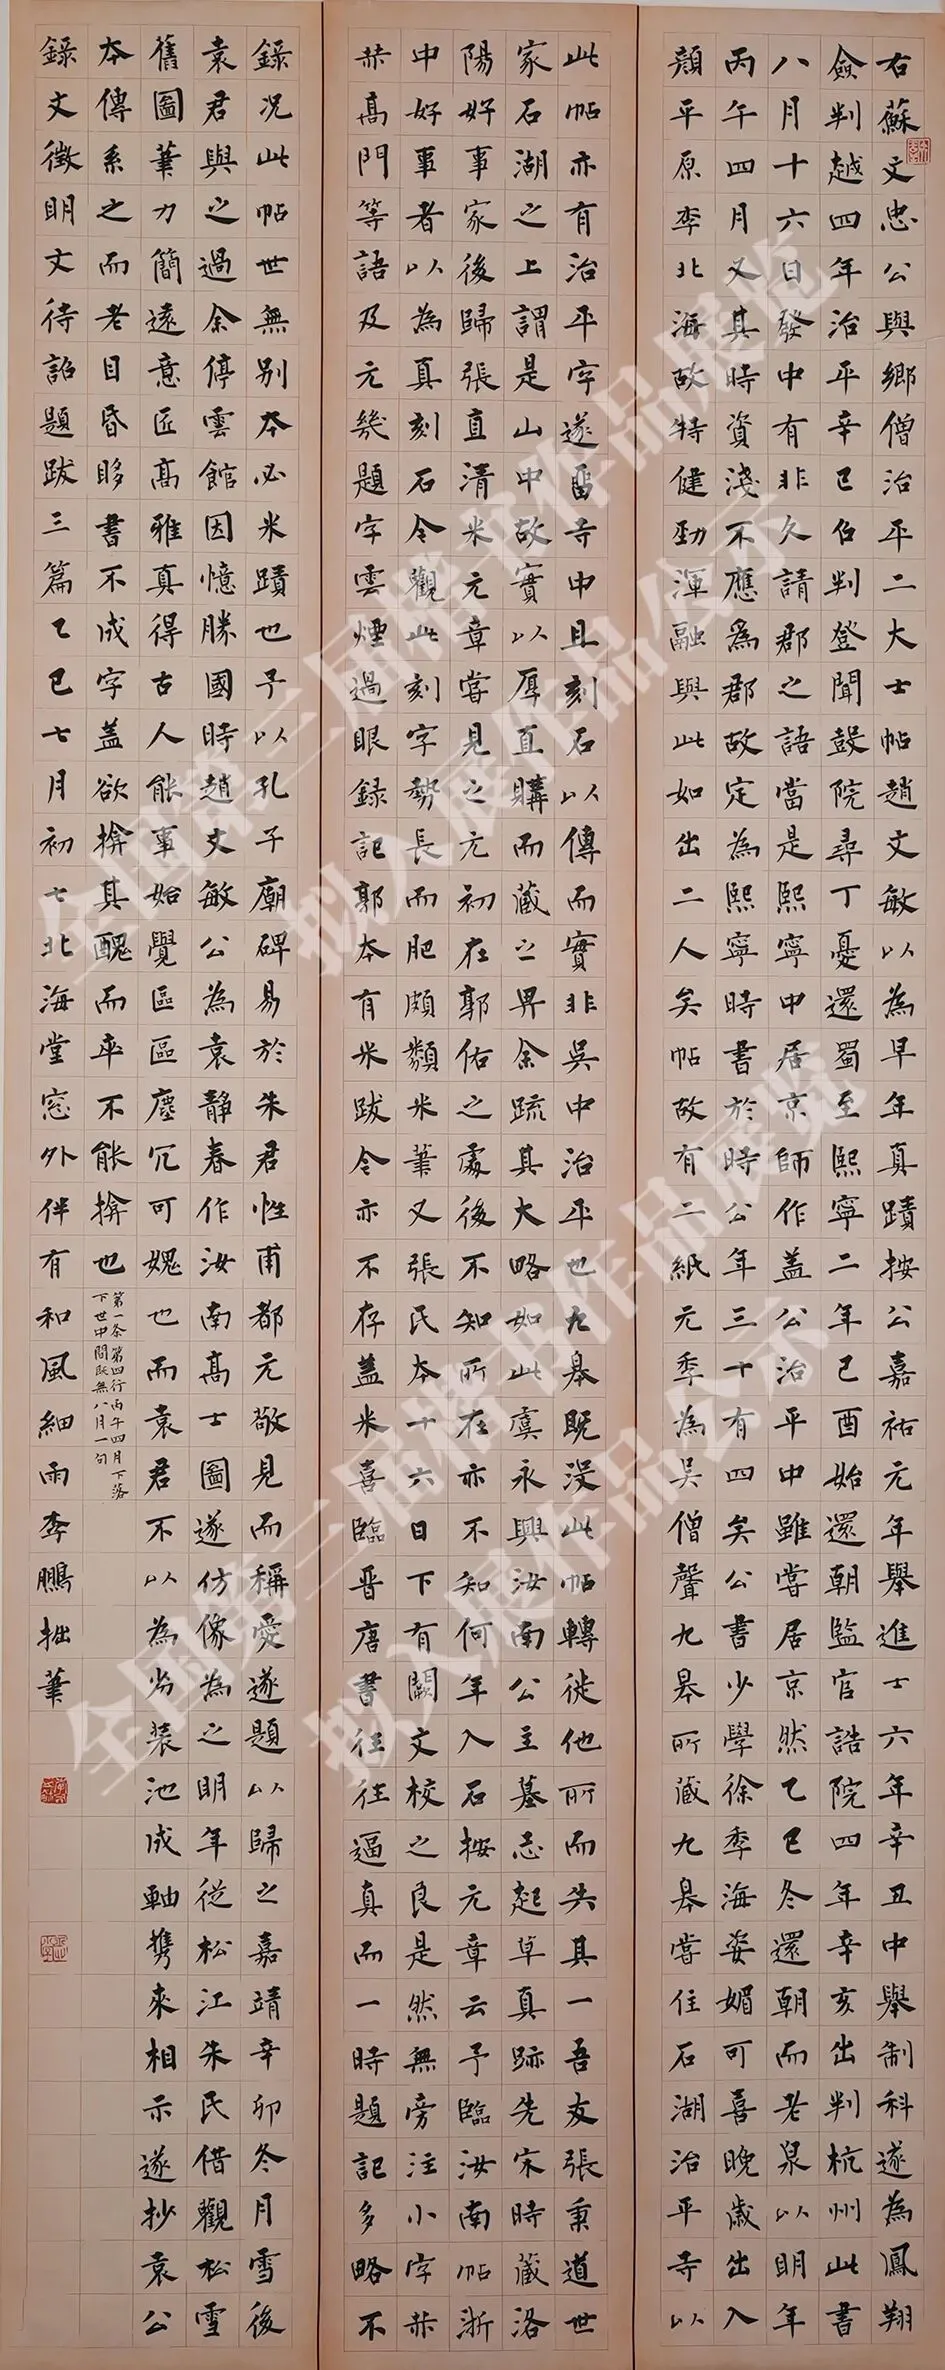 右蘇文忠公與鄉僧治平二大士帖趙文敏以為早年真蹟按公嘉祐元年舉進士六年辛丑中舉制科遂為鳳翔
僉判越四年治平辛巳佰判登聞鼓院尋丁憂還蜀至熙寧二年己酉始還朝監官誥院四年辛亥出判杭州此書
八月十六日發中有非久請郡之語當是熙寧中居京師作蓋公治平中雖嘗居京然乙巳冬還朝而老泉以明年
丙午四月又其時資淺不應為郡故定為熙寧時書於時公年三十有四矣公書少學徐季海姿媚可喜晚歲出入
顏平原李北海故特健勁渾融與此如出二人矣帖故有二紙元季為吳僧聲九皋所藏九皋嘗住石湖治平寺以
此帖亦有治平字遂畱寺中且刻石以傳而實非吳中治平也九皋既沒此帖轉徙他所而失其一吾友張秉道世
家石湖之上謂是山中故實以厚直購而藏之畀余疏其大略如此虞永興汝南公主墓志起草真跡先宋時藏洛
陽好事家後歸張直清米元章嘗見之元初在郭佑之處後不知所在亦不知何年入石按元章云予臨汝南帖浙
中好事者以為真刻石今觀此刻字勢長而肥頗類米筆又張氏本十六日下有闕文校之良是然無旁注小字赫
赫高門等語及元幾題字雲煙過眼錄記郭本有米跋今亦不存蓋米喜臨晉唐書往往逼真而一時題記多略不
錄況此帖世無別本必米蹟也予以孔子廟碑易於朱君性甫都元敬見而稱愛遂題以歸之嘉靖辛卯冬月雪後
袁君與之過余停雲館因憶勝國時趙文敏公為袁靜春作汝南高士圖遂仿像為之明年從松江朱氏借觀松雪
舊圖筆力簡遠意匠高雅真得古人能事始覺區區塵冗可媿也而袁君不以為劣裝池成軸攜來相示遂抄袁公
本傳系之而老目昏眵書不成字蓋欲揜其醜而卒不能揜也
第一条第四行丙午四月下落
下世中間既無八月一句
錄文徵明文待詔題跋三篇乙巳七月初七北海堂窓外伴有和風細雨李鵬拙筆
全国第三届楷书作品展览
拟入展作品公示
全国第三届楷书作品展览
拟入展作品公示